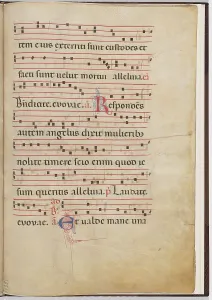 tem eius exterriti sunt custodes et
facti sunt uelut mortui alleluia
Bñdicite. evovae. a. Respondēs
autem angelus dixit mulierib;
nolite timere scio enim quod ie
sum queritis alleluia. p̄ Laudate.
evovae. a Et ualde mane una